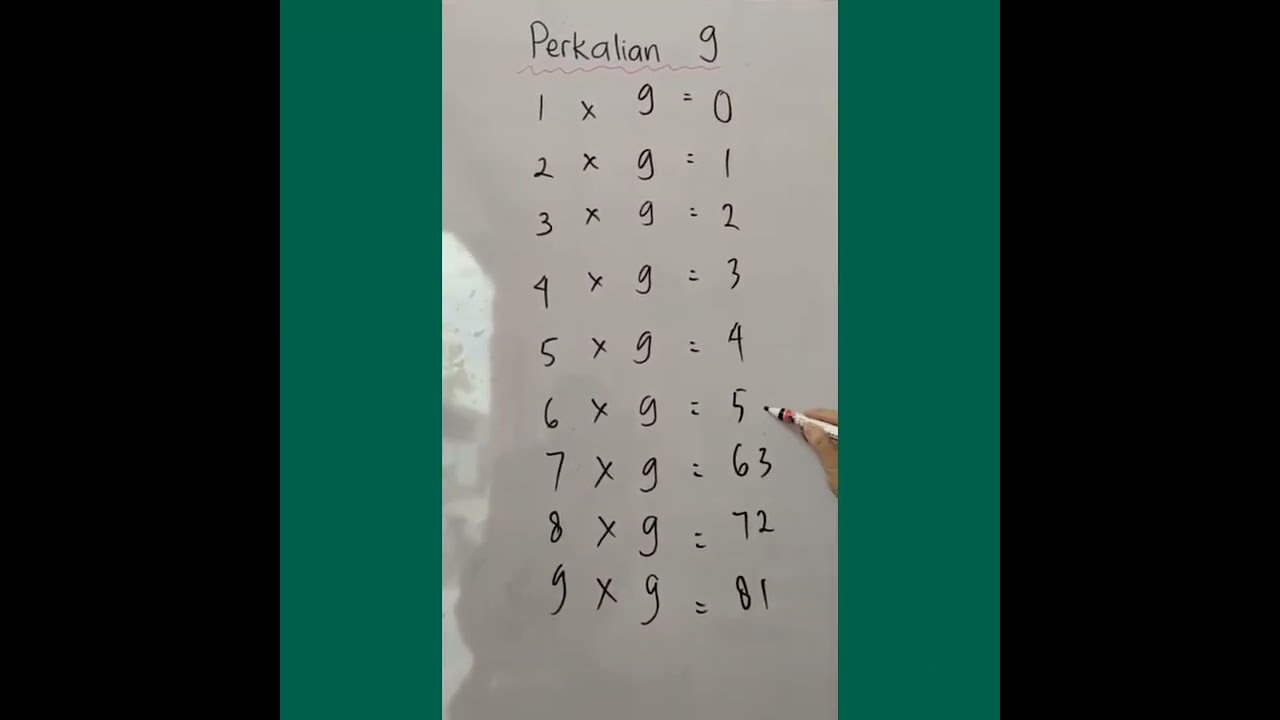 Perkalian 9
1 x 9 = 0
2 x 9 = 1
3 x 9 = 2
4 x 9 = 3
5 x 9 = 4
6 x 9 = 5
7 x 9 = 63
8 x 9 = 72
9 x 9 = 81